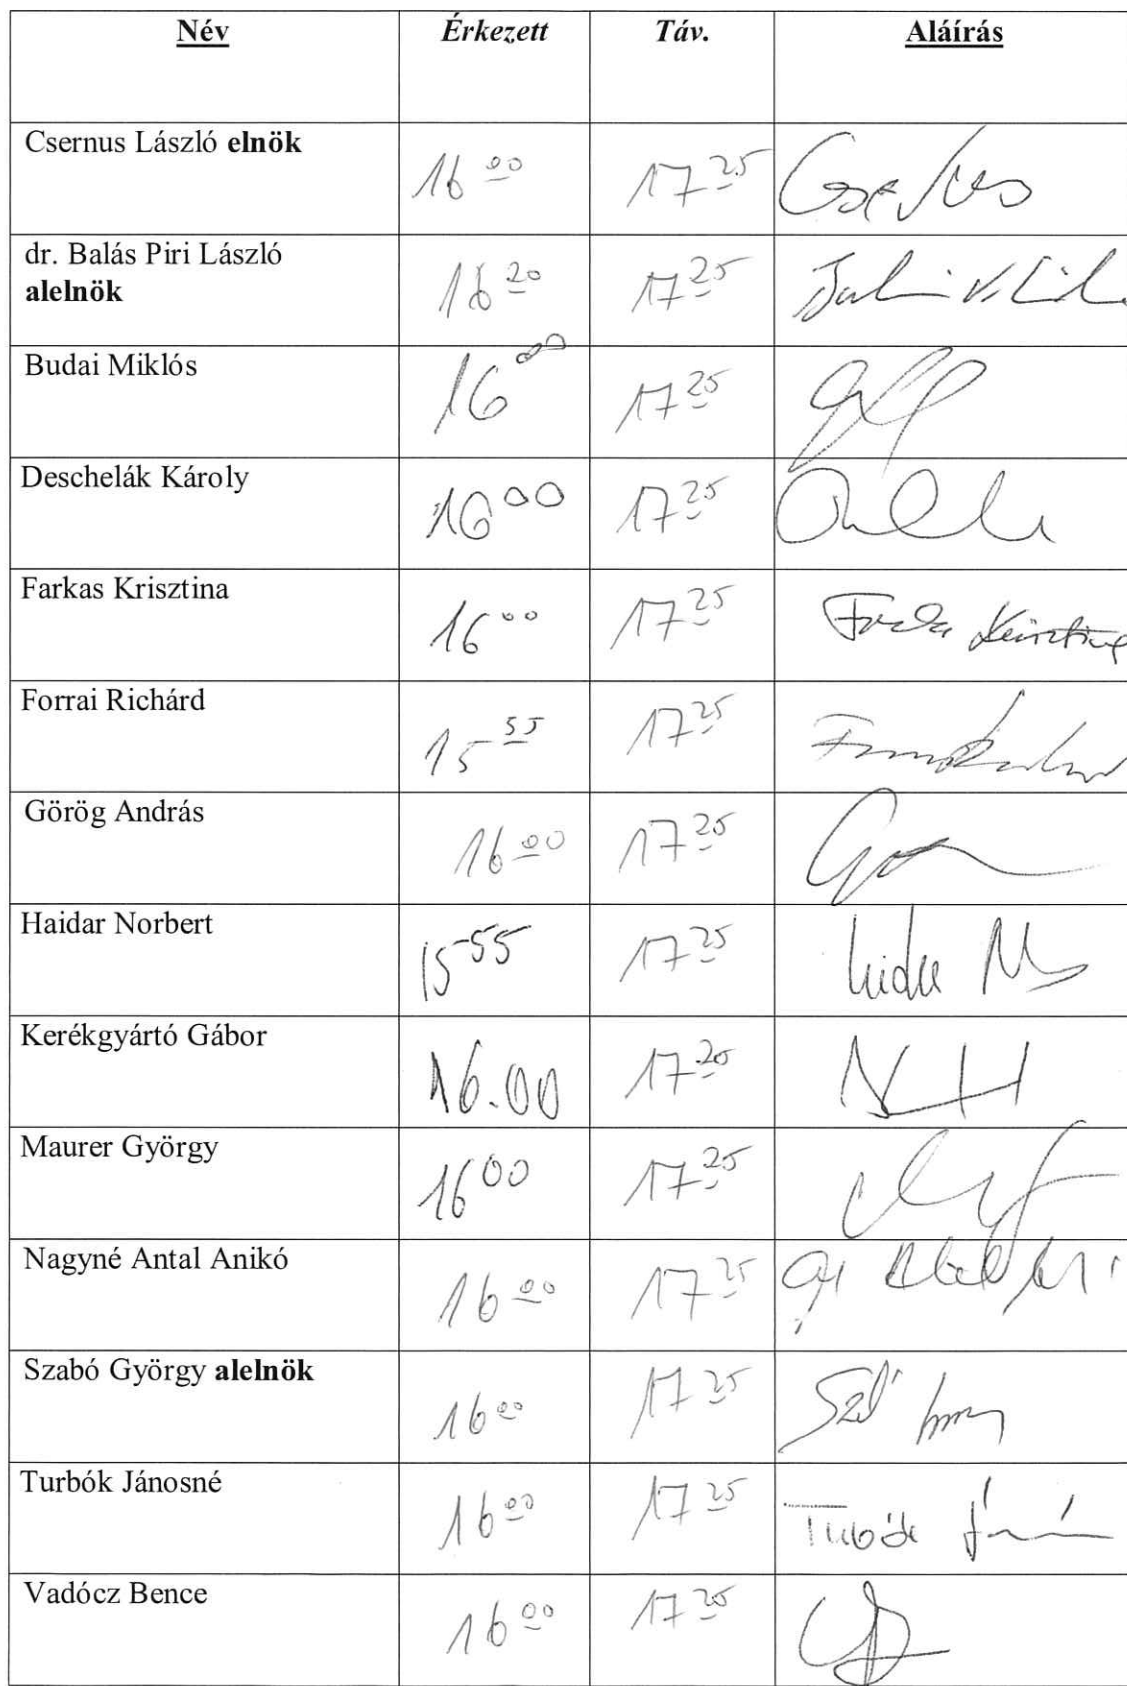 Név Érkezett Táv. Aláírás
Csernus László elnök 16 00 17 25
dr. Balás Piri László
alelnök 16 20 17 25
Budai Miklós 16 00 17 25
Deschelák Károly 16 00 17 25
Farkas Krisztina 16 00 17 25 Farkas Krisztina
Forrai Richárd 15 55 17 25
Görög András 16 00 17 25
Haidar Norbert 15 55 17 25
Kerékgyártó Gábor 16.00 17 25
Maurer György 16 00 17 25
Nagyné Antal Anikó 16 00 17 25
Szabó György alelnök 16 00 17 25
Turbók Jánosné 16 00 17 25
Vadócz Bence 16 00 17 25